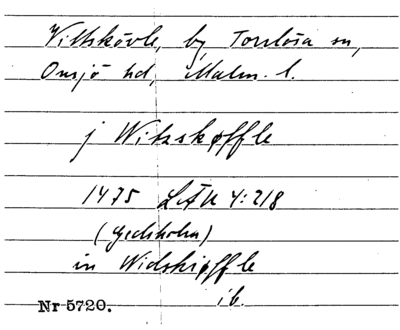 Vittskövle, by, Torrlösa sn,
Onsjö hd, Malm. l.
j Witzskøffle
1475 LÄU 4:218
(Gedsholm)
in Widskiøffle
ib.
Nr 5720.